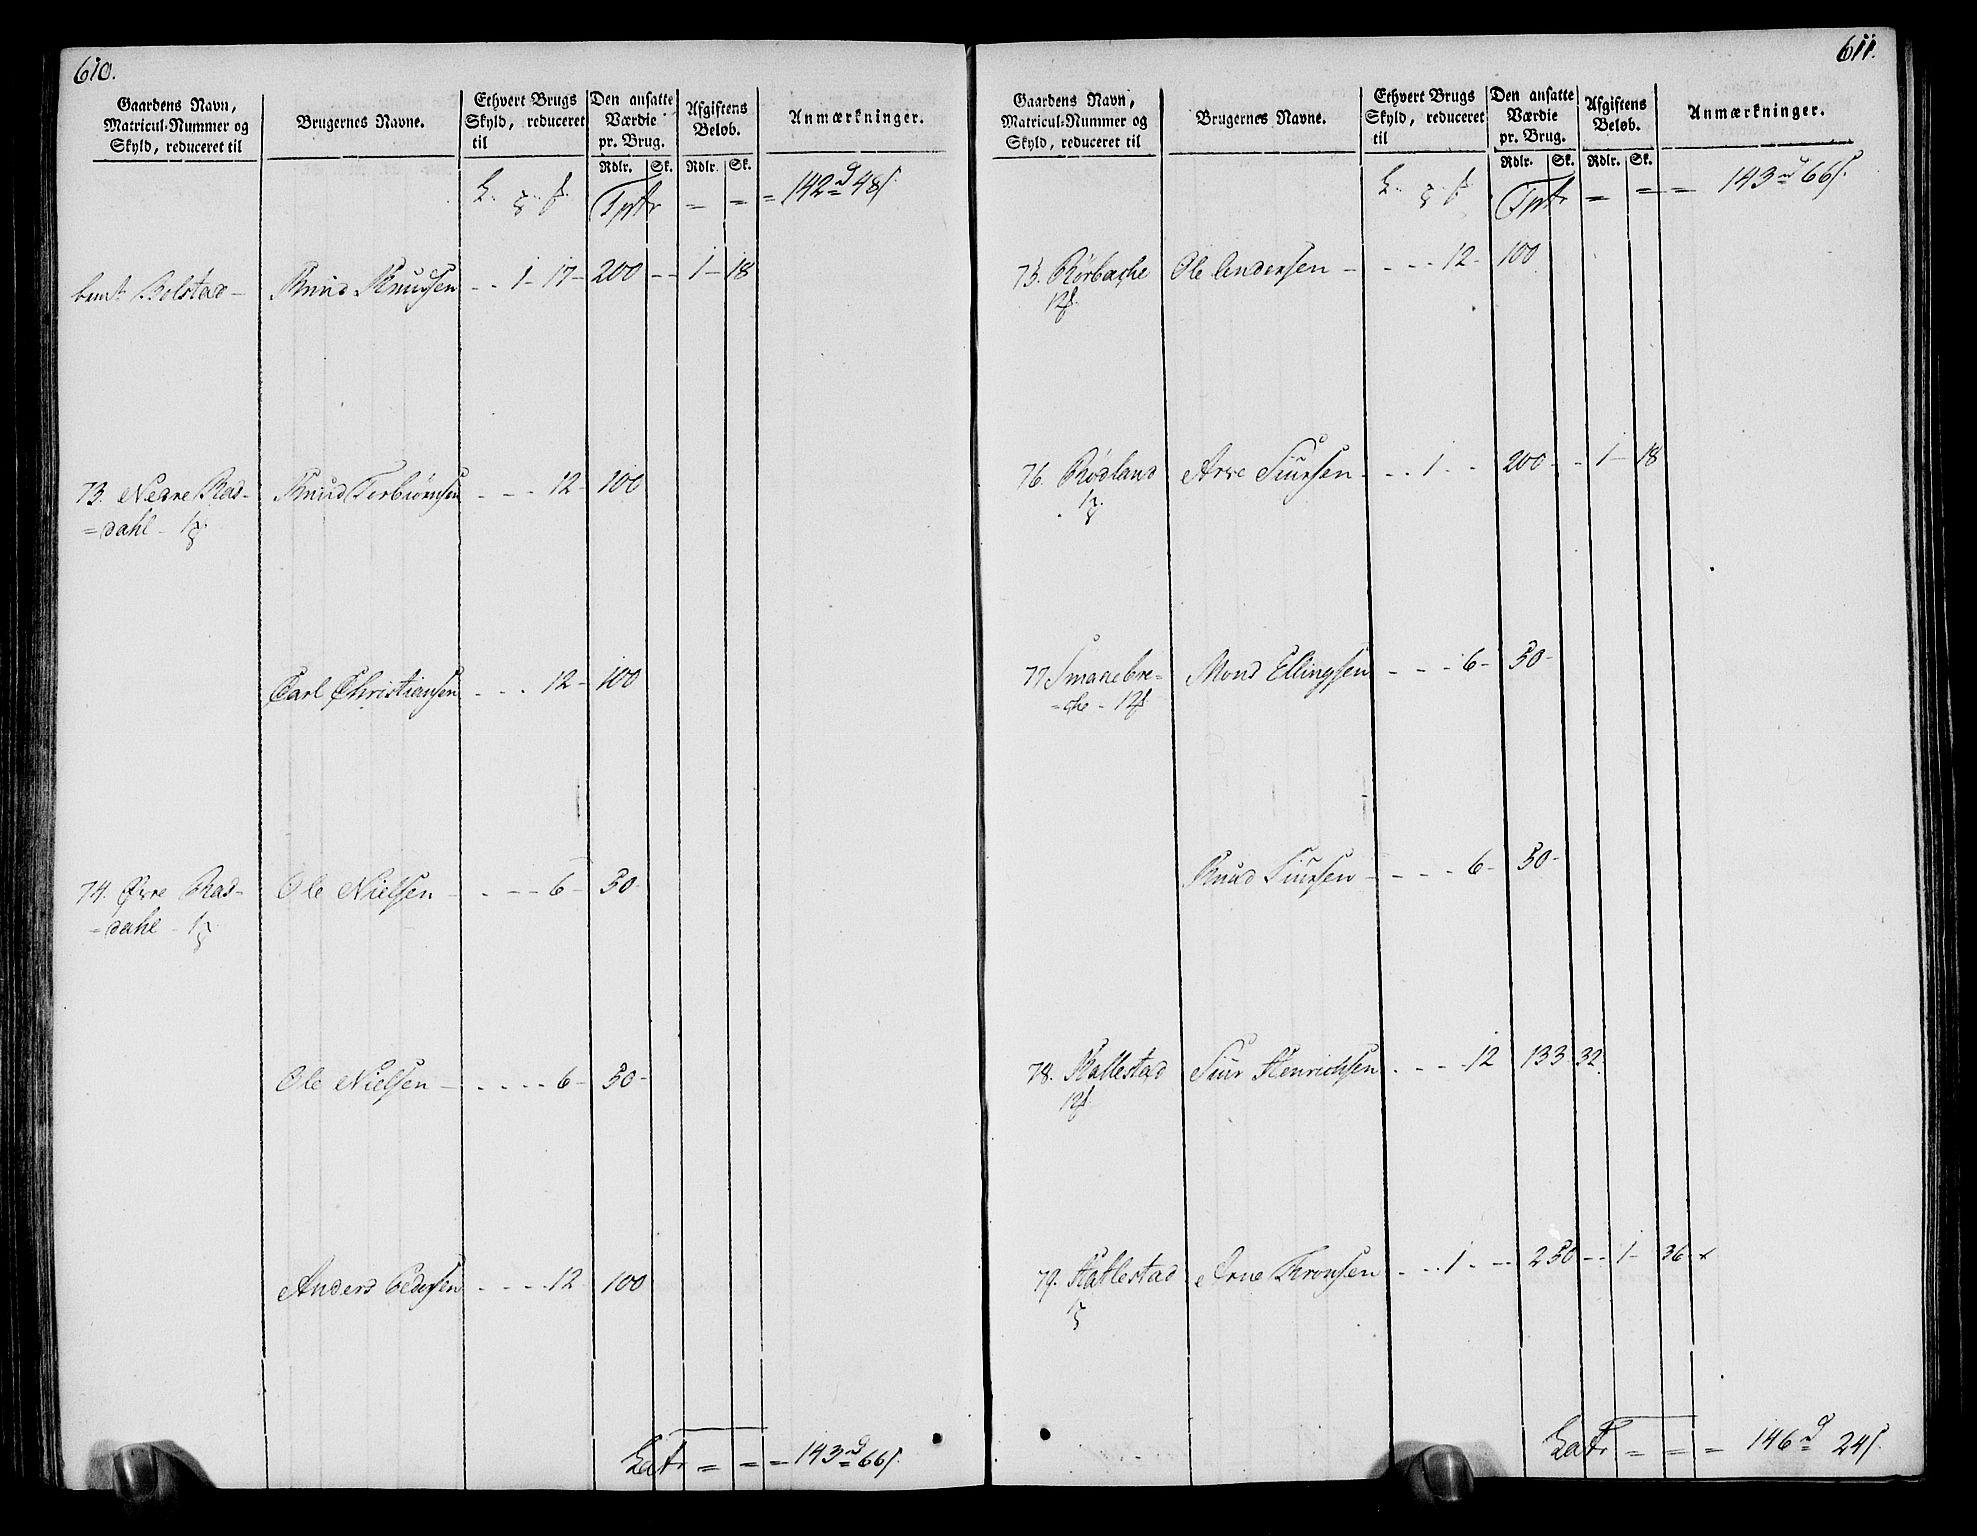 610.
Gaardens Navn, Matricul-Nummer og Skyld, reduceret til
Brugernes Navne.
Ethvert Brugs Skyld, reduceret til
Den ansatte Værdie pr. Brug.
Afgiftens Beløb.
Anmærkninger.
Rdlr. Sk. Rdlr. Sk.
Tptr = = = 142 48
Bolstad - Knud Knudsen - - 1 - 17 - 200 - - 1 - 18
73. Nedre Rad- Knud Torbiørnsen - - - 12 - 100
=dahl - 1
Carl Christiansen - - - 12 - 100
74. Øvre Rad- Ole Nielsen - - - - 6 - 50 -
=dahl - 1
Ole Nielsen - - - - - 6 - 50 -
Anders Pedersen - - - - 12 - 100
Latr = = = 143 66
611.
Gaardens Navn, Matricul-Nummer og Skyld, reduceret til
Brugernes Navne.
Ethvert Brugs Skyld, reduceret til
Den ansatte Værdie pr. Brug.
Afgiftens Beløb.
Anmærkninger.
Rdlr. Sk. Rdlr. Sk.
Tptr = = = 143 66
75. Rørbache Ole Andersen - - - - 12 - 100
12
76. Rødland Arve Siursen - - - 1 - - 200 - - 1 - 18
1
77 Smanebre= Mons Ellingsen - - - 6 - 50 -
=che - 12
Knud Siursen - - - - 6 - 50 -
78. Hallestad Siur Henrichsen - - - - 12 133 32.
12
79. Hatlestad Arne Thronsen - - - 1 - - - 250 - - 1 - 36
1
Latr = = = 146 24